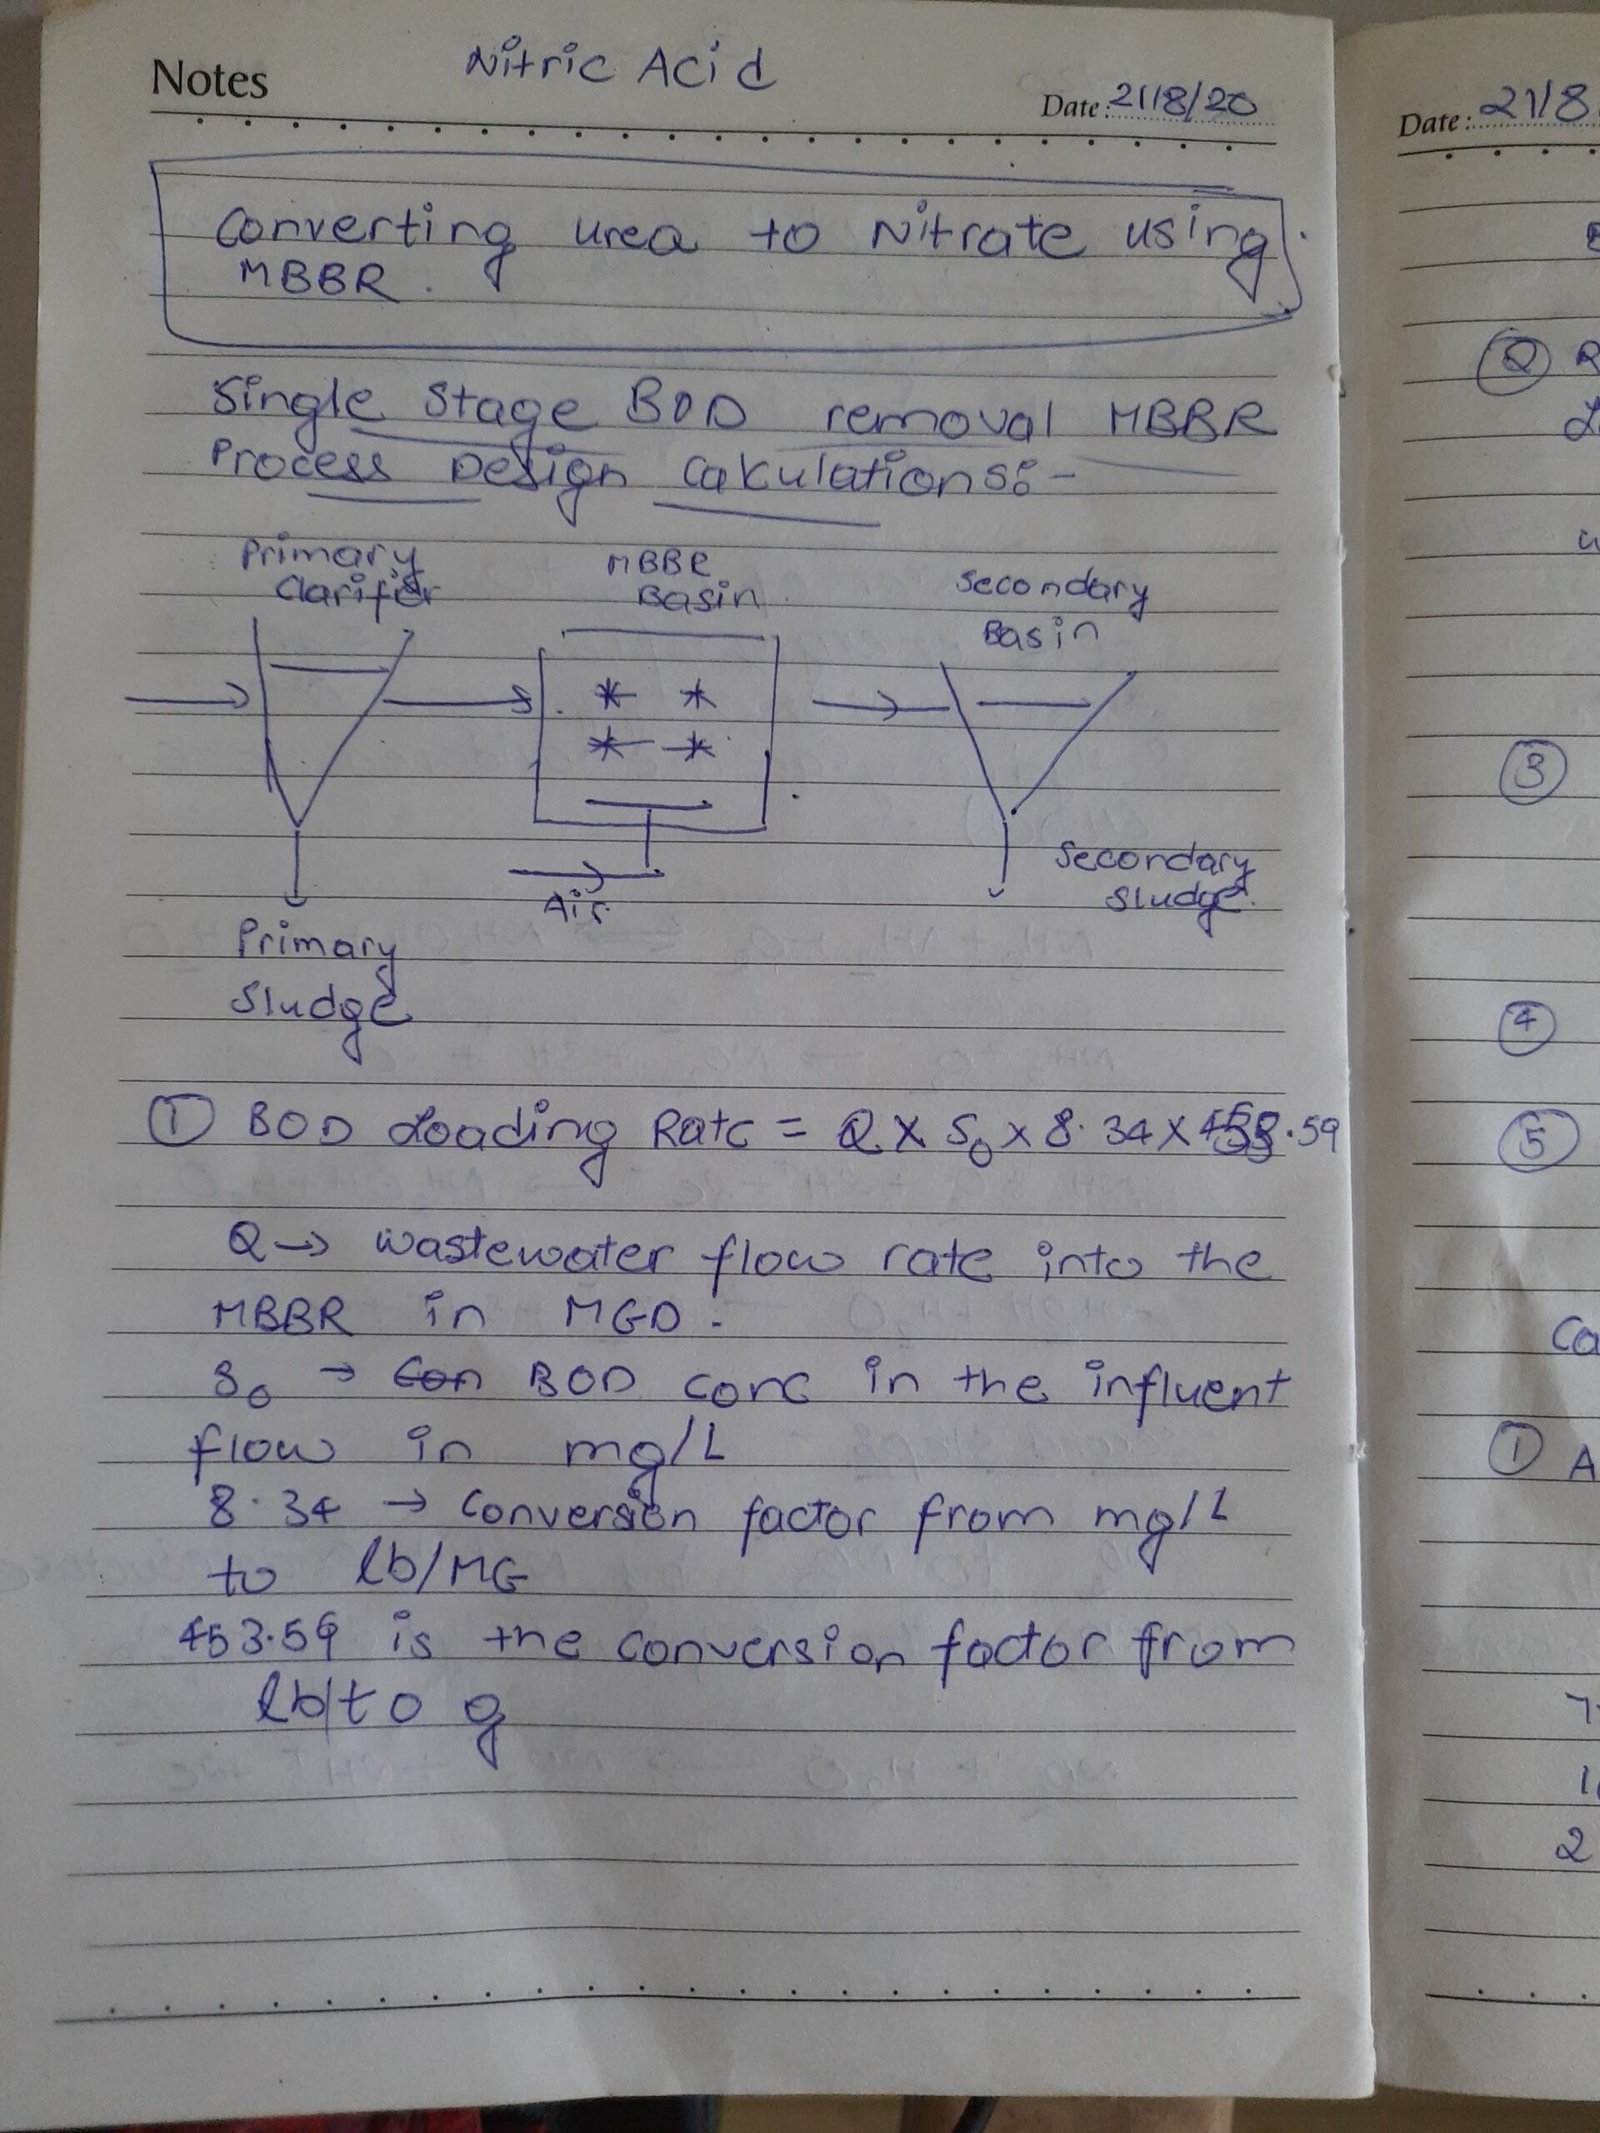 Notes
Nitric Acid
Date: 21/8/20
Converting urea to Nitrate using
MBBR.
Single Stage BOD removal MBBR
Process Design Calculations:-
Primary
Clarifer
MBBR
Basin
Secondary
Basin
Air
Secondary
Sludge
Primary
Sludge
① BOD Loading Rate = Q x S₀ x 8.34 x 453.59
Q → wastewater flow rate into the
MBBR in MGD.
S₀ → Con BOD conc in the influent
flow in mg/L
8.34 → Conversion factor from mg/L
to lb/MG
453.59 is the conversion factor from
lb/to g
Date: 21/8
②
③
④
⑤
Ca
① A
2